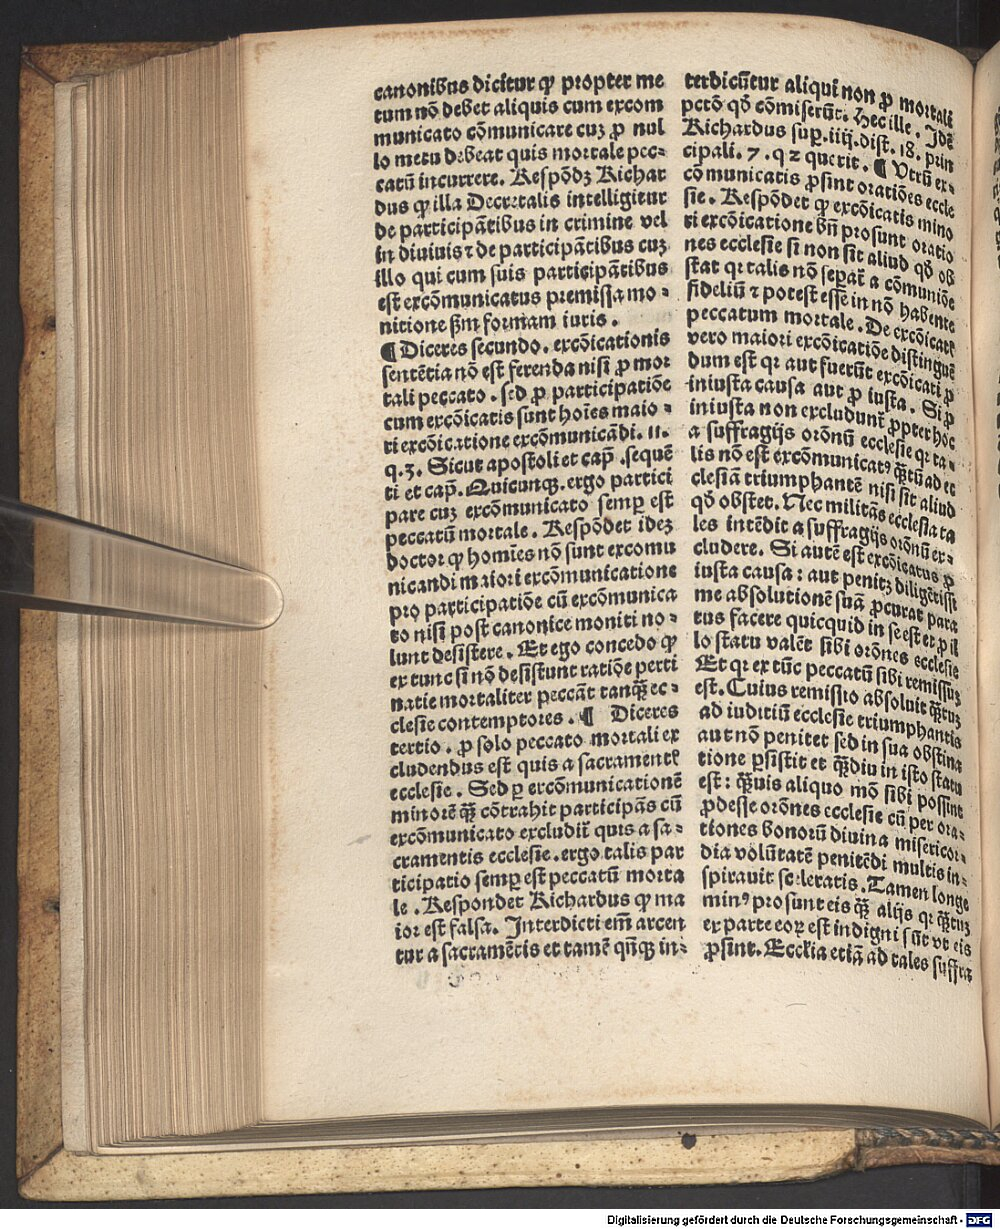 canonibus dicitur ꝙ propter me
tum nō debet aliquis cum excom
municato cōmunicare cuʒ ꝓ nul
lo metu debeat quis mortale pec⸗
catū incurrere. Respōdʒ Richar
dus ꝙ illa Decretalis intelligitur
de participātibus in crimine vel
in diuiuis ⁊ de participātibus cuʒ
illo qui cum suis participātibus
est excōmunicatus premissa mo⸗
nitione ẜm formam iuris.
¶ Diceres secundo. excōicationis
sentētia nō est ferenda nisi ꝓ mor
tali peccato. sed ꝓ participatiōe
cum excōicatis sunt hoīes maio⸗
ri excōicatione excōmunicādi. 11.
q.3. Sicut apostoli et cap̄. sequē
ti et cap̄. Quicunqꝫ. ergo partici
pare cuʒ excōmunicato semꝑ est
peccatū mortale. Respōdet ideʒ
doctor ꝙ homīes nō sunt excomu
nicandi maiori excōmunicatione
pro participatiōe cū excōmunica
to nisi post canonice moniti no⸗
lunt desistere. Et ego concedo ꝙ
ex tunc si nō desistunt ratiōe perti
natie mortaliter peccāt tanqꝫ̄ ec⸗
clesie contemptores. ¶ Diceres
tertio. ꝓ solo peccato mortali ex
cludendus est quis a sacramentꝭ
ecclesie. Sed ꝑ excōmunicationē
minorē quā cōtrahit participās cū
excōmunicato excludit̄ quis a sa⸗
cramentis ecclesie. ergo talis par
ticipatio semꝑ est peccatū morta
le. Respondet Richardus ꝙ ma
ior est falsa. Interdicti em̄ arcen
tur a sacramētis et tamē qn̄qꝫ in⸗
terdicūtur aliqui non ꝓ mortali
pctō qd̄ cōmiserūt. Hec ille. Idē
Richardus suꝑ. iiij. dist. 18. prin
cipali. 7. q 2 querit. ¶ Vtrū ex⸗
cōmunicatis ꝓsint oratiōes eccle
sie. Respōdet ꝙ excōicatis mino
ri excōicatione bn̄ prosunt oratio
nes ecclesie si non sit aliud qd̄ ob
stat qꝛ talis nō separat̄ a cōmuniōe
fideliū ⁊ potest esse in nō habente
peccatum mortale. De excōicatꝭ
vero maiori excōicatiōe distinguē
dum est qꝛ aut fuerūt excōicati ꝓ
iniusta causa aut ꝓ iusta. Si ꝓ
iniusta non excludunt̄ ꝓpter hoc
a suffragijs orōnū ecclesie qꝛ ta⸗
lis nō est excōmunicatꝰ qꝫ̄tū ad ec
clesiā triumphantē nisi sit aliud
qd̄ obstet. Nec militās ecclesia ta
les intēdit a suffragijs orōnū ex⸗
cludere. Si autē est excōicatus ꝓ
iusta causa: aut penitʒ diligētissi
me absolutionē suā ꝓcurat para
tus facere quicquid in se est et ꝓ il
lo statu valēt sibi orōnes ecclesie
Et qꝛ ex tūc peccatū sibi remissuʒ
est. Cuius remissio absoluit qꝫ̄tuʒ
ad iuditiū ecclesie triumphantis
aut nō penitet sed in sua obstina
tione ꝑsistit et qꝫ̄diu in isto statu
est: qꝫ̄uis aliquo mō sibi possint
ꝓdesse orōnes ecclesie cū per ora⸗
tiones bonorū diuina misericor⸗
dia volūtatē penitēdi multis in⸗
spirauit sceleratis. Tamen longe
minꝰ prosunt eis qꝫ̄ alijs qꝛ qꝫ̄tuʒ
ex parte eoꝝ est indigni sūt vt eis
ꝓsint. Ecclia etiā ad tales suffra
Digitalisierung gefördert durch die Deutsche Forschungsgemeinschaft - DFG